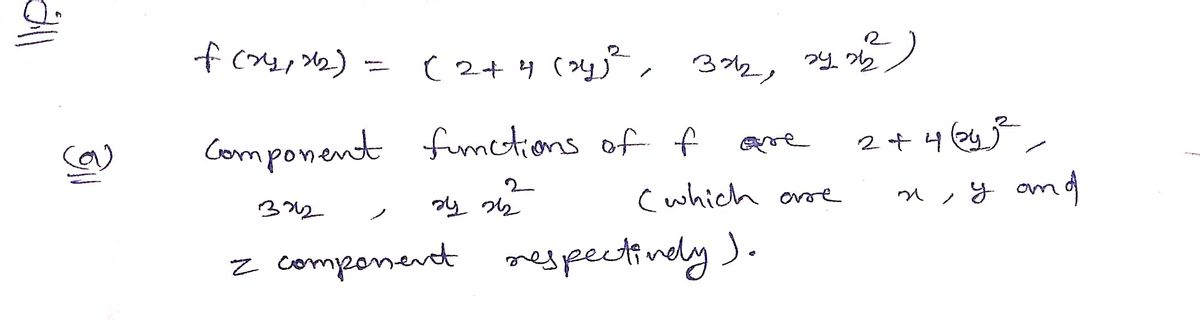 Q.
f(x₁, x₂) = (2+4(x₁)², 3x₂, x₁x₂²)
(a) Component functions of f are 2+4(x₁)²,
3x₂, x₁x₂² (which are x, y and
z component respectively).